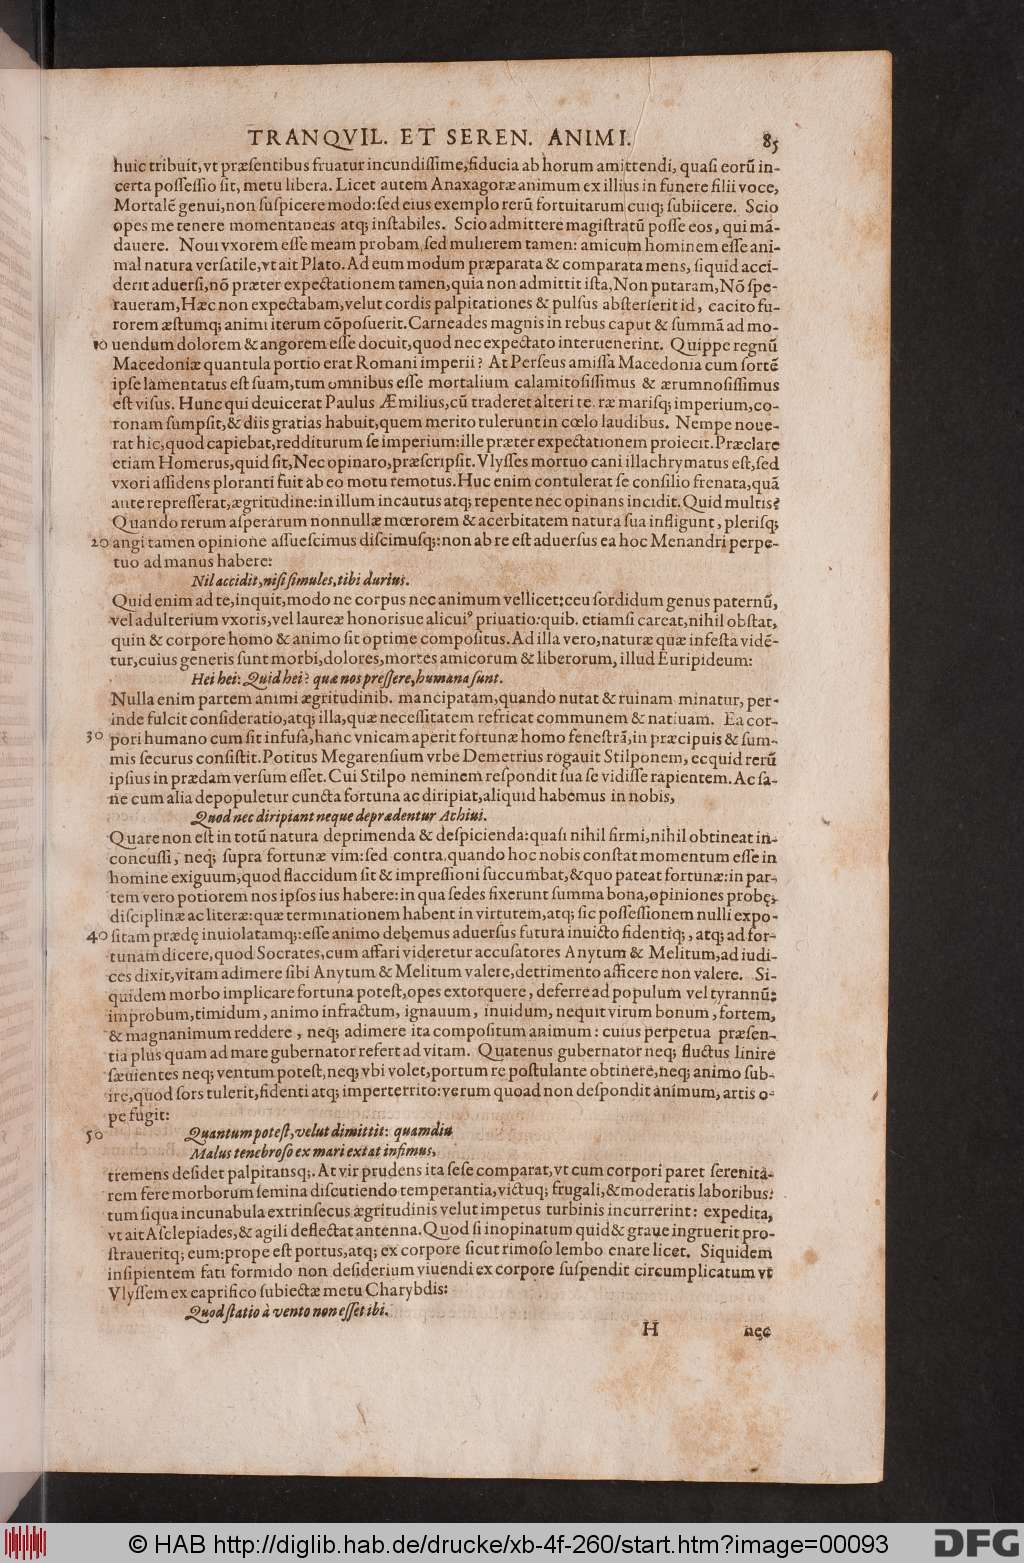 TRANQVIL. ET SEREN. ANIMI. 85
huic tribuit, vt præsentibus fruatur incundissime, fiducia ab horum amittendi, quasi eorū in-
certa possessio sit, metu libera. Licet autem Anaxagoræ animum ex illius in funere filii voce,
Mortalē genui, non suspicere modo: sed eius exemplo rerū fortuitarum cuiq; subiicere. Scio
opes me tenere momentaneas atq; instabiles. Scio admittere magistratū posse eos, qui mā-
dauere. Noui vxorem esse meam probam, sed mulierem tamen: amicum hominem esse ani-
mal natura versatile, vt ait Plato. Ad eum modum præparata & comparata mens, siquid acci-
derit aduersi, nō præter expectationem tamen, quia non admittit ista, Non putaram, Nō spe-
raueram, Hæc non expectabam, velut cordis palpitationes & pulsus absterserit id, cacito fu-
rorem æstumq; animi iterum cōposuerit. Carneades magnis in rebus caput & summā ad mo-
10 uendum dolorem & angorem esse docuit, quod nec expectato interuenerint. Quippe regnū
Macedoniæ quantula portio erat Romani imperii? At Perseus amissa Macedonia cum sortē
ipse lamentatus est suam, tum omnibus esse mortalium calamitosissimus & ærumnosissimus
est visus. Hunc qui deuicerat Paulus Æmilius, cū traderet alteri terræ marisq; imperium, co-
ronam sumpsit, & diis gratias habuit, quem merito tulerunt in cœlo laudibus. Nempe noue-
rat hic, quod capiebat, redditurum se imperium: ille præter expectationem proiecit. Præclare
etiam Homerus, quid sit, Nec opinato, præscripsit. Vlysses mortuo cani illachrymatus est, sed
vxori assidens ploranti fuit ab eo motu remotus. Huc enim contulerat se consilio frenata, quā
ante represserat, ægritudine: in illum incautus atq; repente nec opinans incidit. Quid multis?
Quando rerum asperarum nonnullæ mœrorem & acerbitatem natura sua infligunt, plerisq;
20 angi tamen opinione assuescimus discimusq;: non ab re est aduersus ea hoc Menandri perpe-
tuo ad manus habere:
Nil accidit, nisi simules, tibi durius.
Quid enim ad te, inquit, modo ne corpus nec animum vellicet: ceu sordidum genus paternū,
vel adulterium vxoris, vel laureæ honorisue alicuiꝰ priuatio: quib. etiamsi careat, nihil obstat,
quin & corpore homo & animo sit optime compositus. Ad illa vero, naturæ quæ infesta vidē-
tur, cuius generis sunt morbi, dolores, mortes amicorum & liberorum, illud Euripideum:
Hei hei: Quid hei? quæ nos pressere, humana sunt.
Nulla enim partem animi ægritudinib. mancipatam, quando nutat & ruinam minatur, per-
inde fulcit consideratio, atq; illa, quæ necessitatem refricat communem & natiuam. Ea cor-
30 pori humano cum sit infusa, hanc vnicam aperit fortunæ homo fenestrā, in præcipuis & sum-
mis securus consistit. Potitus Megarensium vrbe Demetrius rogauit Stilponem, ecquid rerū
ipsius in prædam versum esset. Cui Stilpo neminem respondit sua se vidisse rapientem. Ac sa-
ne cum alia depopuletur cuncta fortuna ac diripiat, aliquid habemus in nobis,
Quod nec diripiant neque deprædentur Achiui.
Quare non est in totū natura deprimenda & despicienda: quasi nihil firmi, nihil obtineat in-
concussi, neq; supra fortunæ vim: sed contra, quando hoc nobis constat momentum esse in
homine exiguum, quod flaccidum sit & impressioni succumbat, & quo pateat fortunæ: in par-
tem vero potiorem nos ipsos ius habere: in qua sedes fixerunt summa bona, opiniones probę,
disciplinæ ac literæ: quæ terminationem habent in virtutem, atq; sic possessionem nulli expo-
40 sitam prædę inuiolatamq;: esse animo debemus aduersus futura inuicto fidentiq;, atq; ad for-
tunam dicere, quod Socrates, cum affari videretur accusatores Anytum & Melitum, ad iudi-
ces dixit, vitam adimere sibi Anytum & Melitum valere, detrimento afficere non valere. Si-
quidem morbo implicare fortuna potest, opes extorquere, deferre ad populum vel tyrannū:
improbum, timidum, animo infractum, ignauum, inuidum, nequit virum bonum, fortem,
& magnanimum reddere, neq; adimere ita compositum animum: cuius perpetua præsen-
tia plus quam ad mare gubernator refert ad vitam. Quatenus gubernator neq; fluctus linire
sæuientes neq; ventum potest, neq; vbi volet, portum re postulante obtinere, neq; animo sub-
ire, quod sors tulerit, fidenti atq; imperterrito: verum quoad non despondit animum, artis o-
pe fugit:
50 Quantum potest, velut dimittit: quamdiu
Malus tenebroso ex mari extat infimus,
tremens desidet palpitansq;. At vir prudens ita sese comparat, vt cum corpori paret serenita-
rem fere morborum semina discutiendo temperantia, victuq; frugali, & moderatis laboribus:
tum siqua incunabula extrinsecus ægritudinis velut impetus turbinis incurrerint: expedita,
vt ait Asclepiades, & agili deflectat antenna. Quod si inopinatum quid & graue ingruerit pro-
straueritq; eum: prope est portus, atq; ex corpore sicut rimoso lembo enare licet. Siquidem
insipientem fati formido non desiderium viuendi ex corpore suspendit circumplicatum vt
Vlyssem ex caprifico subiectæ metu Charybdis:
Quod statio à vento non esset ibi.
H nec
© HAB http://diglib.hab.de/drucke/xb-4f-260/start.htm?image=00093 DFG